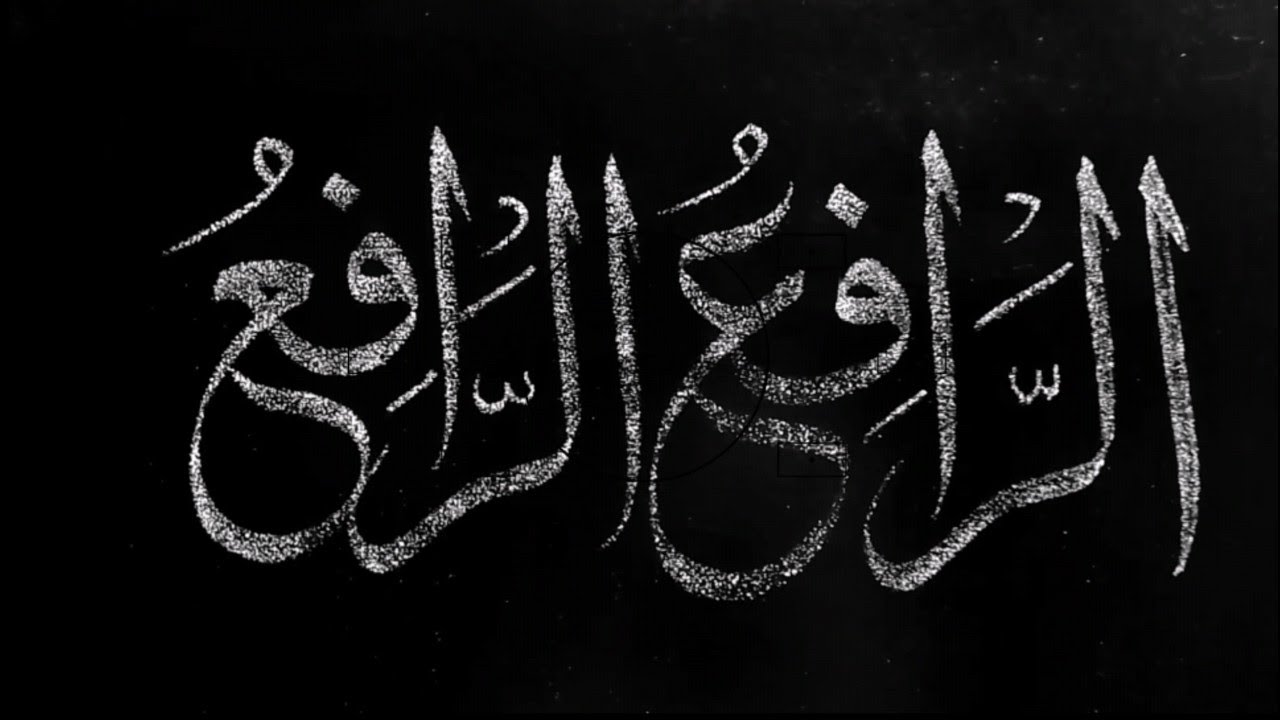 الرَّافِعُ الرَّافِعُ